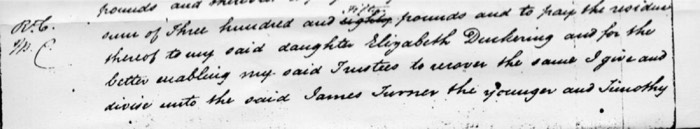 pounds and
R. C. sum of Three hundred and eighty fifty pounds and to pay the residue
thereof to my said daughter Elizabeth Duckering and for the
better enabling my said Trustees to recover the same I give and
divise unto the said James Turner the younger and Timothy